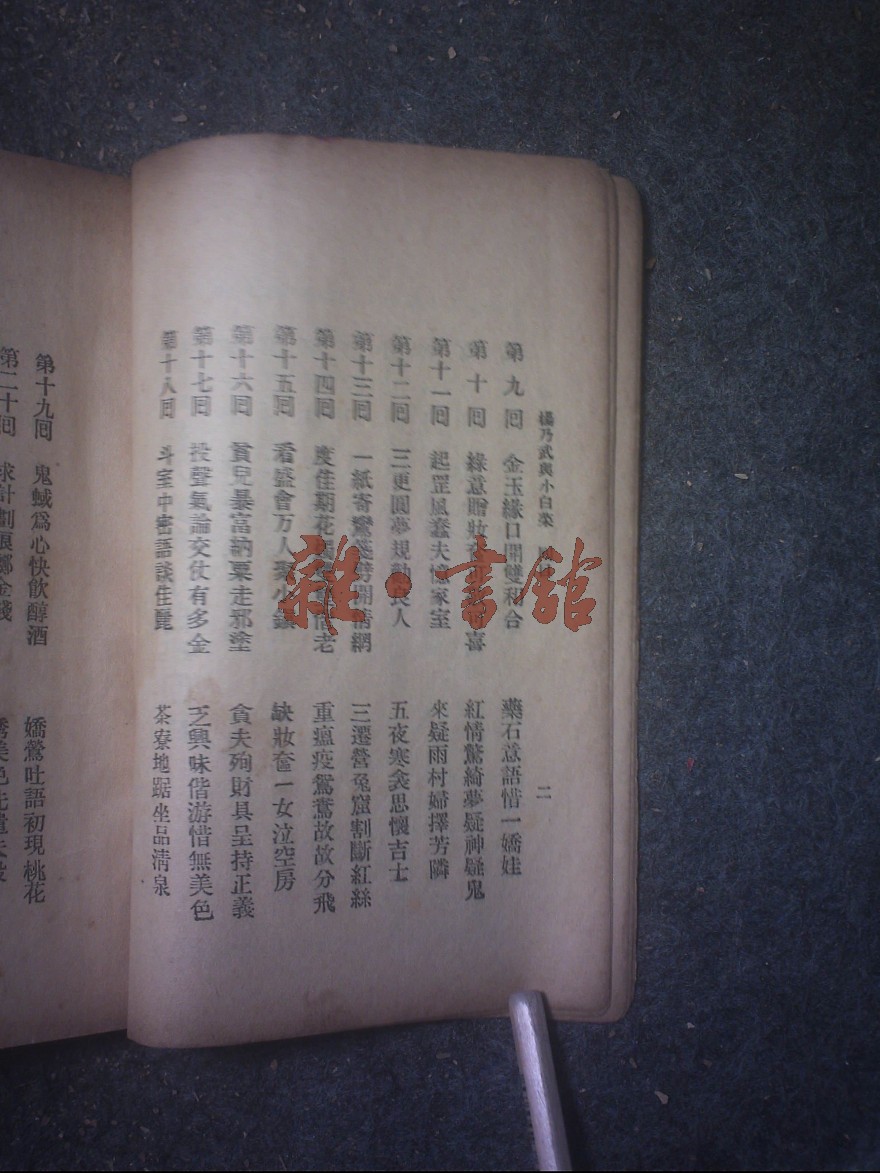 楊乃武與小白菜
二
第九回 金玉緣口開雙和合 藥石意語惜一嬌娃
第十回 緣意贈妝 喜 紅情驚綺夢疑神疑鬼
第十一回 起罡風蠢夫憶家室 來疑雨村婦擇芳隣
第十二回 三更圓夢規勸良人 五夜寒衾思懷吉士
第十三回 一紙寄鸞箋劈開情網 三遷營兔窟割斷紅絲
第十四回 度佳期花 老 重瘟疫鴛鴦故故分飛
第十五回 看盛會万人聚小鎮 缺妝奩一女泣空房
第十六回 貧兒暴富納粟走邪塗 貪夫殉財具呈持正義
第十七回 投聲氣論交仗有多金 乏興味偕游惜無美色
第十八回 斗室中密語談佳麗 茶寮地踞坐品淸泉
第十九回 鬼蜮爲心快飮醇酒 嬌鶯吐語初現桃花
第二十回
雜·書館